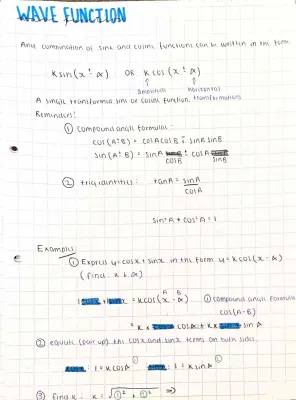 WAVE FUNCTION
Any combination of sine and cosine functions can be written in the form
K sin(x ± α) OR K cos(x ± α)
↑ Amplitude ↑ Horizontal
A single transformed sine or cosine function. transformation
Reminders!
① compound angle formulas:
cos(A±B) = cosA cosB ∓ sinA sinB
sin(A±B) = sinA cosB ± cosA sinB
② trig identities: tanA = sinA/cosA
sin²A + cos²A = 1
Examples:
① Express y=cosx+sinx in the form y=Kcos(x-α)
(find K & α)
A B
1cosx + 1sinx = Kcos(x-α) ① compound angle formula
cos(A-B)
= K x cosx cosα + K x sinx sin α
② equate (pair up) the cosx and sinx terms on both sides.
cosx: 1 = K cosα ① sinx: 1 = K sinα ②
③ find K: K = √①² + ②²